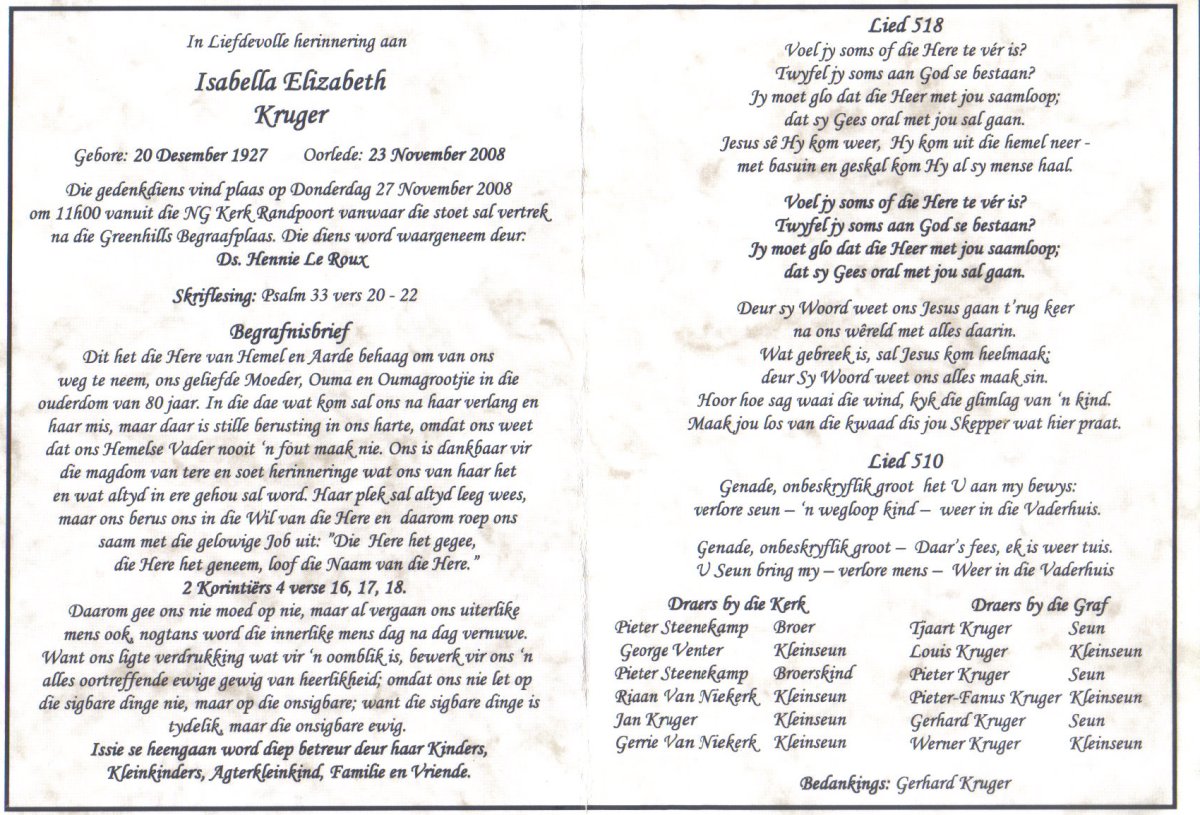 In Liefdevolle herinnering aan
Isabella Elizabeth
Kruger
Gebore: 20 Desember 1927 Oorlede: 23 November 2008
Die gedenkdiens vind plaas op Donderdag 27 November 2008
om 11h00 vanuit die NG Kerk Randpoort vanwaar die stoet sal vertrek
na die Greenhills Begraafplaas. Die diens word waargeneem deur:
Ds. Hennie Le Roux
Skriflesing: Psalm 33 vers 20 - 22
Begrafnisbrief
Dit het die Here van Hemel en Aarde behaag om van ons
weg te neem, ons geliefde Moeder, Ouma en Oumagrootjie in die
ouderdom van 80 jaar. In die dae wat kom sal ons na haar verlang en
haar mis, maar daar is stille berusting in ons harte, omdat ons weet
dat ons Hemelse Vader nooit ‘n fout maak nie. Ons is dankbaar vir
die magdom van tere en soet herinneringe wat ons van haar het
en wat altyd in ere gehou sal word. Haar plek sal altyd leeg wees,
maar ons berus ons in die Wil van die Here en daarom roep ons
saam met die gelowige Job uit: ”Die Here het gegee,
die Here het geneem, loof die Naam van die Here.”
2 Korintiërs 4 verse 16, 17, 18.
Daarom gee ons nie moed op nie, maar al vergaan ons uiterlike
mens ook, nogtans word die innerlike mens dag na dag vernuwe.
Want ons ligte verdrukking wat vir ‘n oomblik is, bewerk vir ons ‘n
alles oortreffende ewige gewig van heerlikheid; omdat ons nie let op
die sigbare dinge nie, maar op die onsigbare; want die sigbare dinge is
tydelik, maar die onsigbare ewig.
Issie se heengaan word diep betreur deur haar Kinders,
Kleinkinders, Agterkleinkind, Familie en Vriende.
Lied 518
Voel jy soms of die Here te vér is?
Twyfel jy soms aan God se bestaan?
Jy moet glo dat die Heer met jou saamloop;
dat sy Gees oral met jou sal gaan.
Jesus sê Hy kom weer, Hy kom uit die hemel neer -
met basuin en geskal kom Hy al sy mense haal.
Voel jy soms of die Here te vér is?
Twyfel jy soms aan God se bestaan?
Jy moet glo dat die Heer met jou saamloop;
dat sy Gees oral met jou sal gaan.
Deur sy Woord weet ons Jesus gaan t’rug keer
na ons wêreld met alles daarin.
Wat gebreek is, sal Jesus kom heelmaak;
deur Sy Woord weet ons alles maak sin.
Hoor hoe sag waai die wind, kyk die glimlag van ‘n kind.
Maak jou los van die kwaad dis jou Skepper wat hier praat.
Lied 510
Genade, onbeskryflik groot het U aan my bewys:
verlore seun – ‘n wegloop kind – weer in die Vaderhuis.
Genade, onbeskryflik groot – Daar’s fees, ek is weer tuis.
U Seun bring my – verlore mens – Weer in die Vaderhuis
Draers by die Kerk Draers by die Graf
Pieter Steenekamp Broer Tjaart Kruger Seun
George Venter Kleinseun Louis Kruger Kleinseun
Pieter Steenekamp Broerskind Pieter Kruger Seun
Riaan Van Niekerk Kleinseun Pieter-Fanus Kruger Kleinseun
Jan Kruger Kleinseun Gerhard Kruger Seun
Gerrie Van Niekerk Kleinseun Werner Kruger Kleinseun
Bedankings: Gerhard Kruger